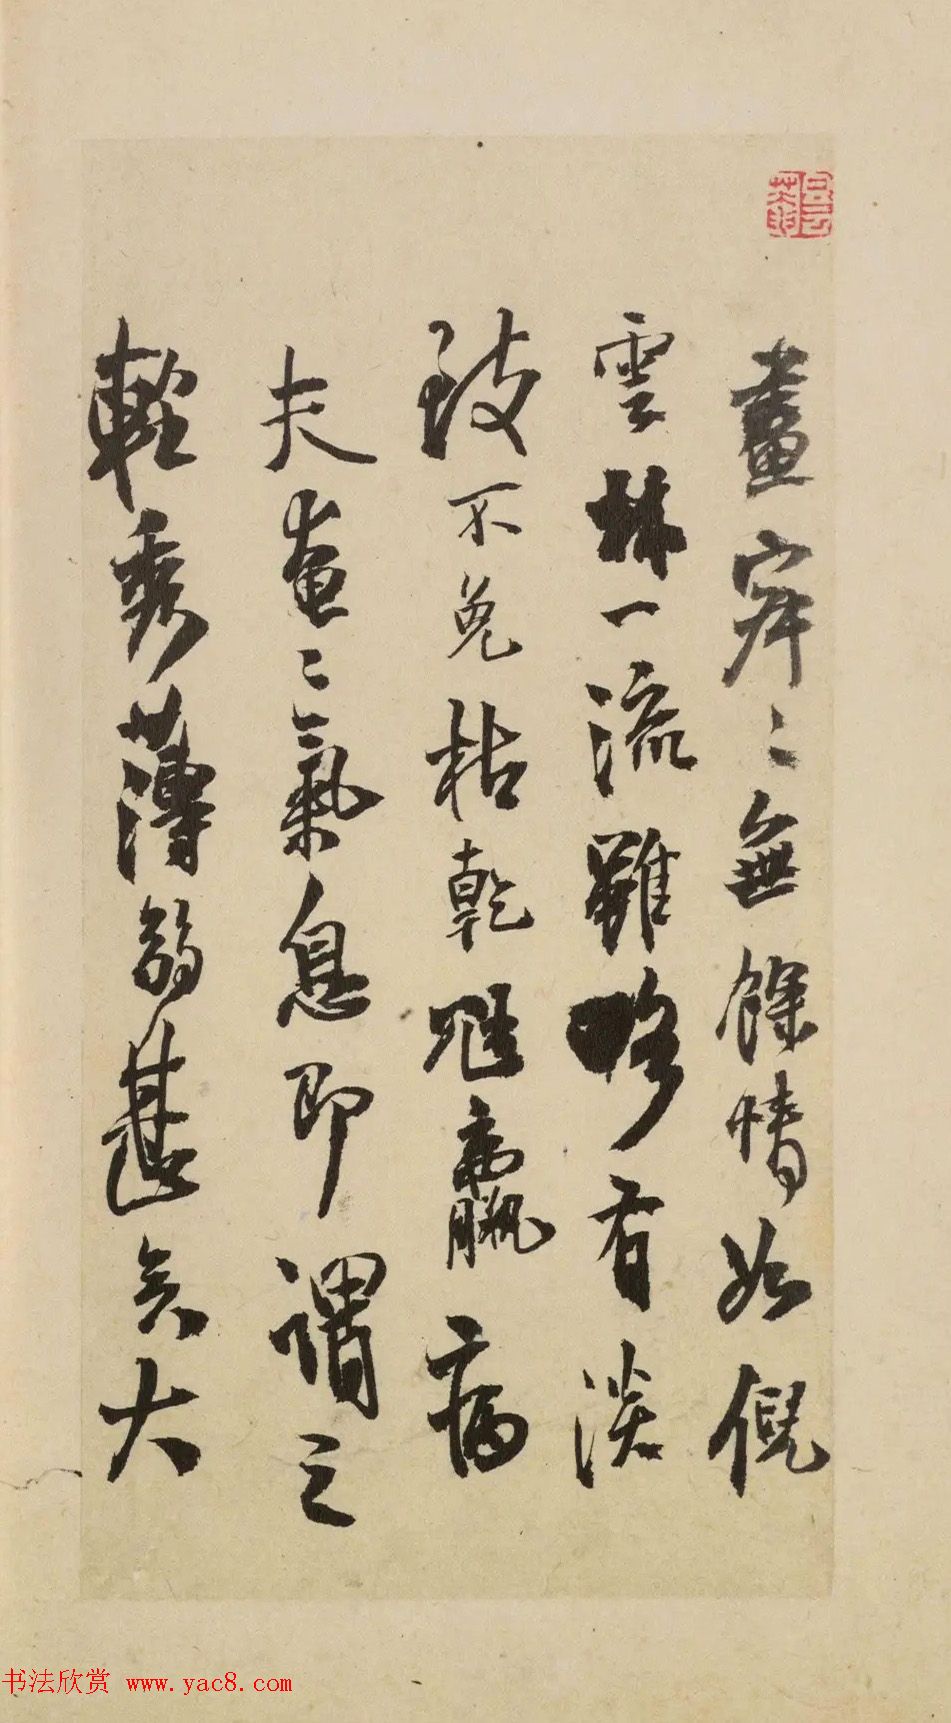 畫寂〻無餘情如倪
雲林一流雖略有淡
致不免枯乾尫羸病
夫奄〻氣息即謂之
輕秀薄弱甚矣大
书法欣赏 www.yac8.com